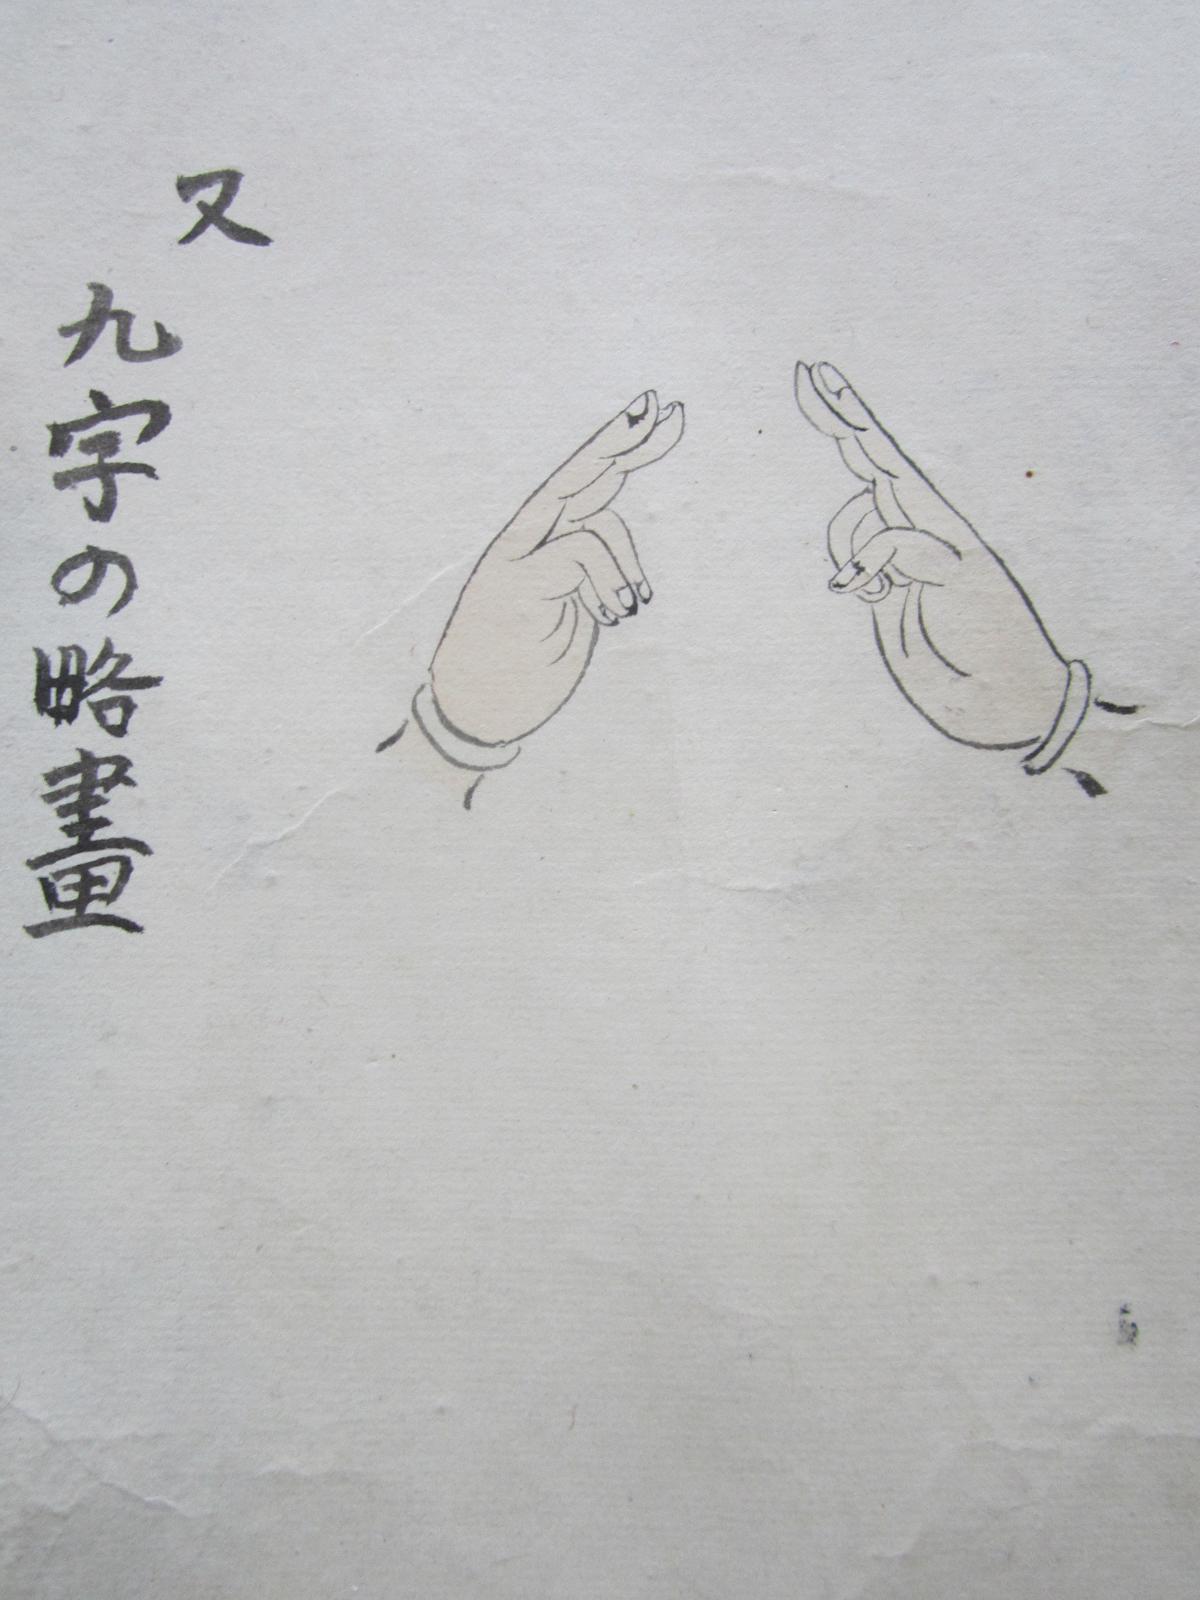 又
九字の略畫